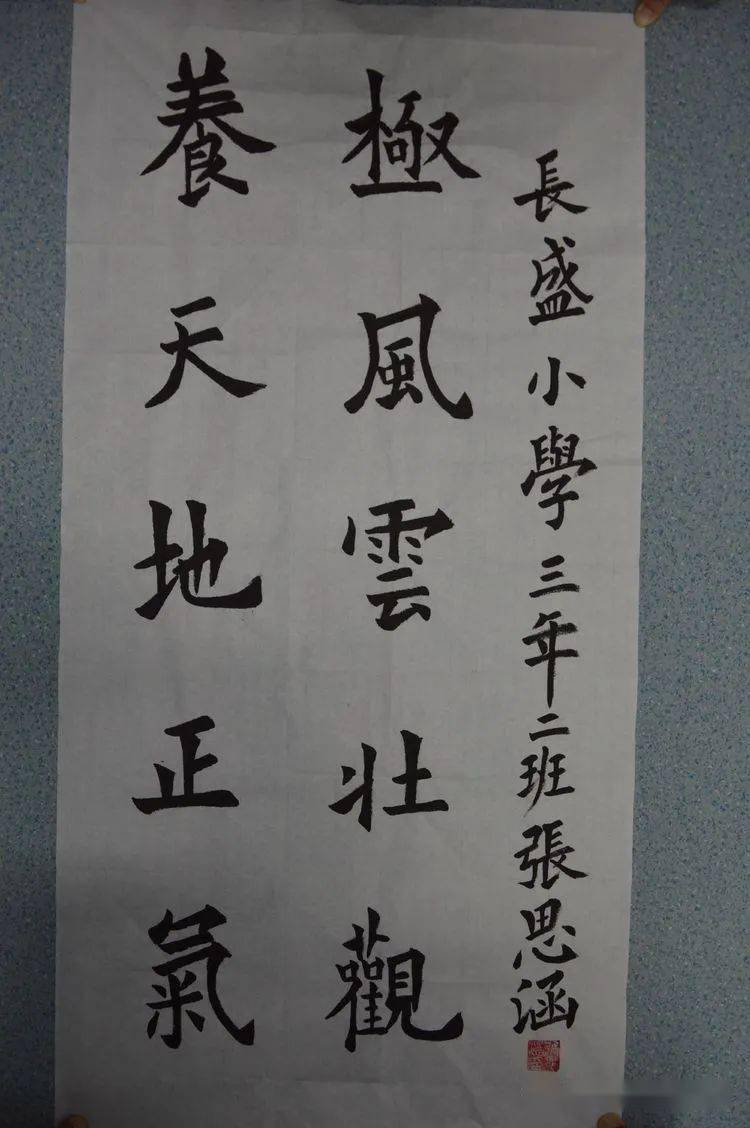 養天地正氣
極風雲壯觀
長盛小學三年二班張思涵